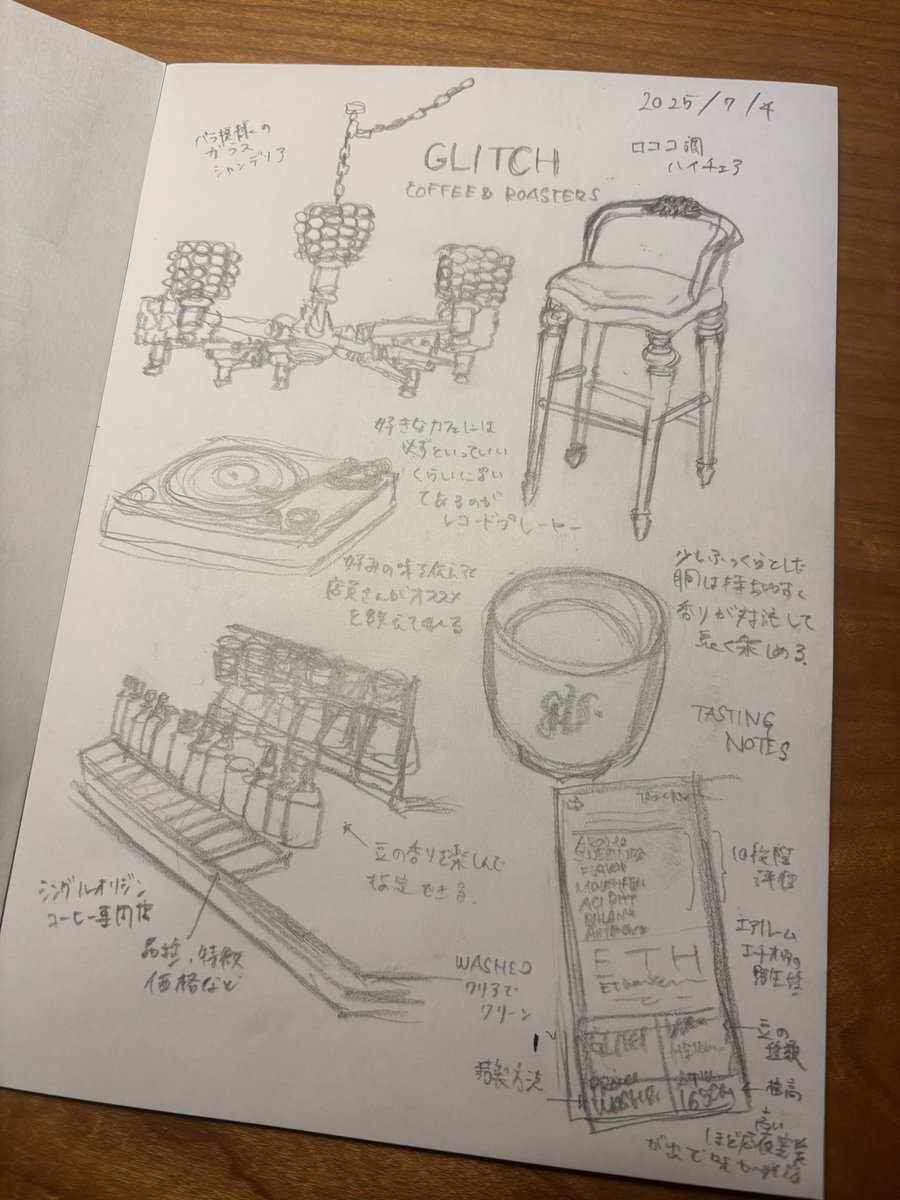 2025/7/4
バラ模様の
ガラス
シャンデリア
GLITCH
COFFEE & ROASTERS
ロココ調
ハイチェア
好きなカフェには
必ずといっていい
くらいに置い
てあるのが
レコードプレーヤー
好みの味を伝えて
店員さんがオススメ
を教えてくれる
少しふっくらとした
胴は持ちやすく
香りが対流して
長く楽しめる
TASTING
NOTES
豆の香りを楽しんで
指定できる
シングルオリジン
コーヒー専門店
品種、特徴
価格など
WASHED
クリアで
クリーン
精製方法
FLAVOR
ACIDITY
ETH
WASHED
10段階
評価
エアルーム
エチオピアの
野生種
豆の
種類
標高
高い
ほど